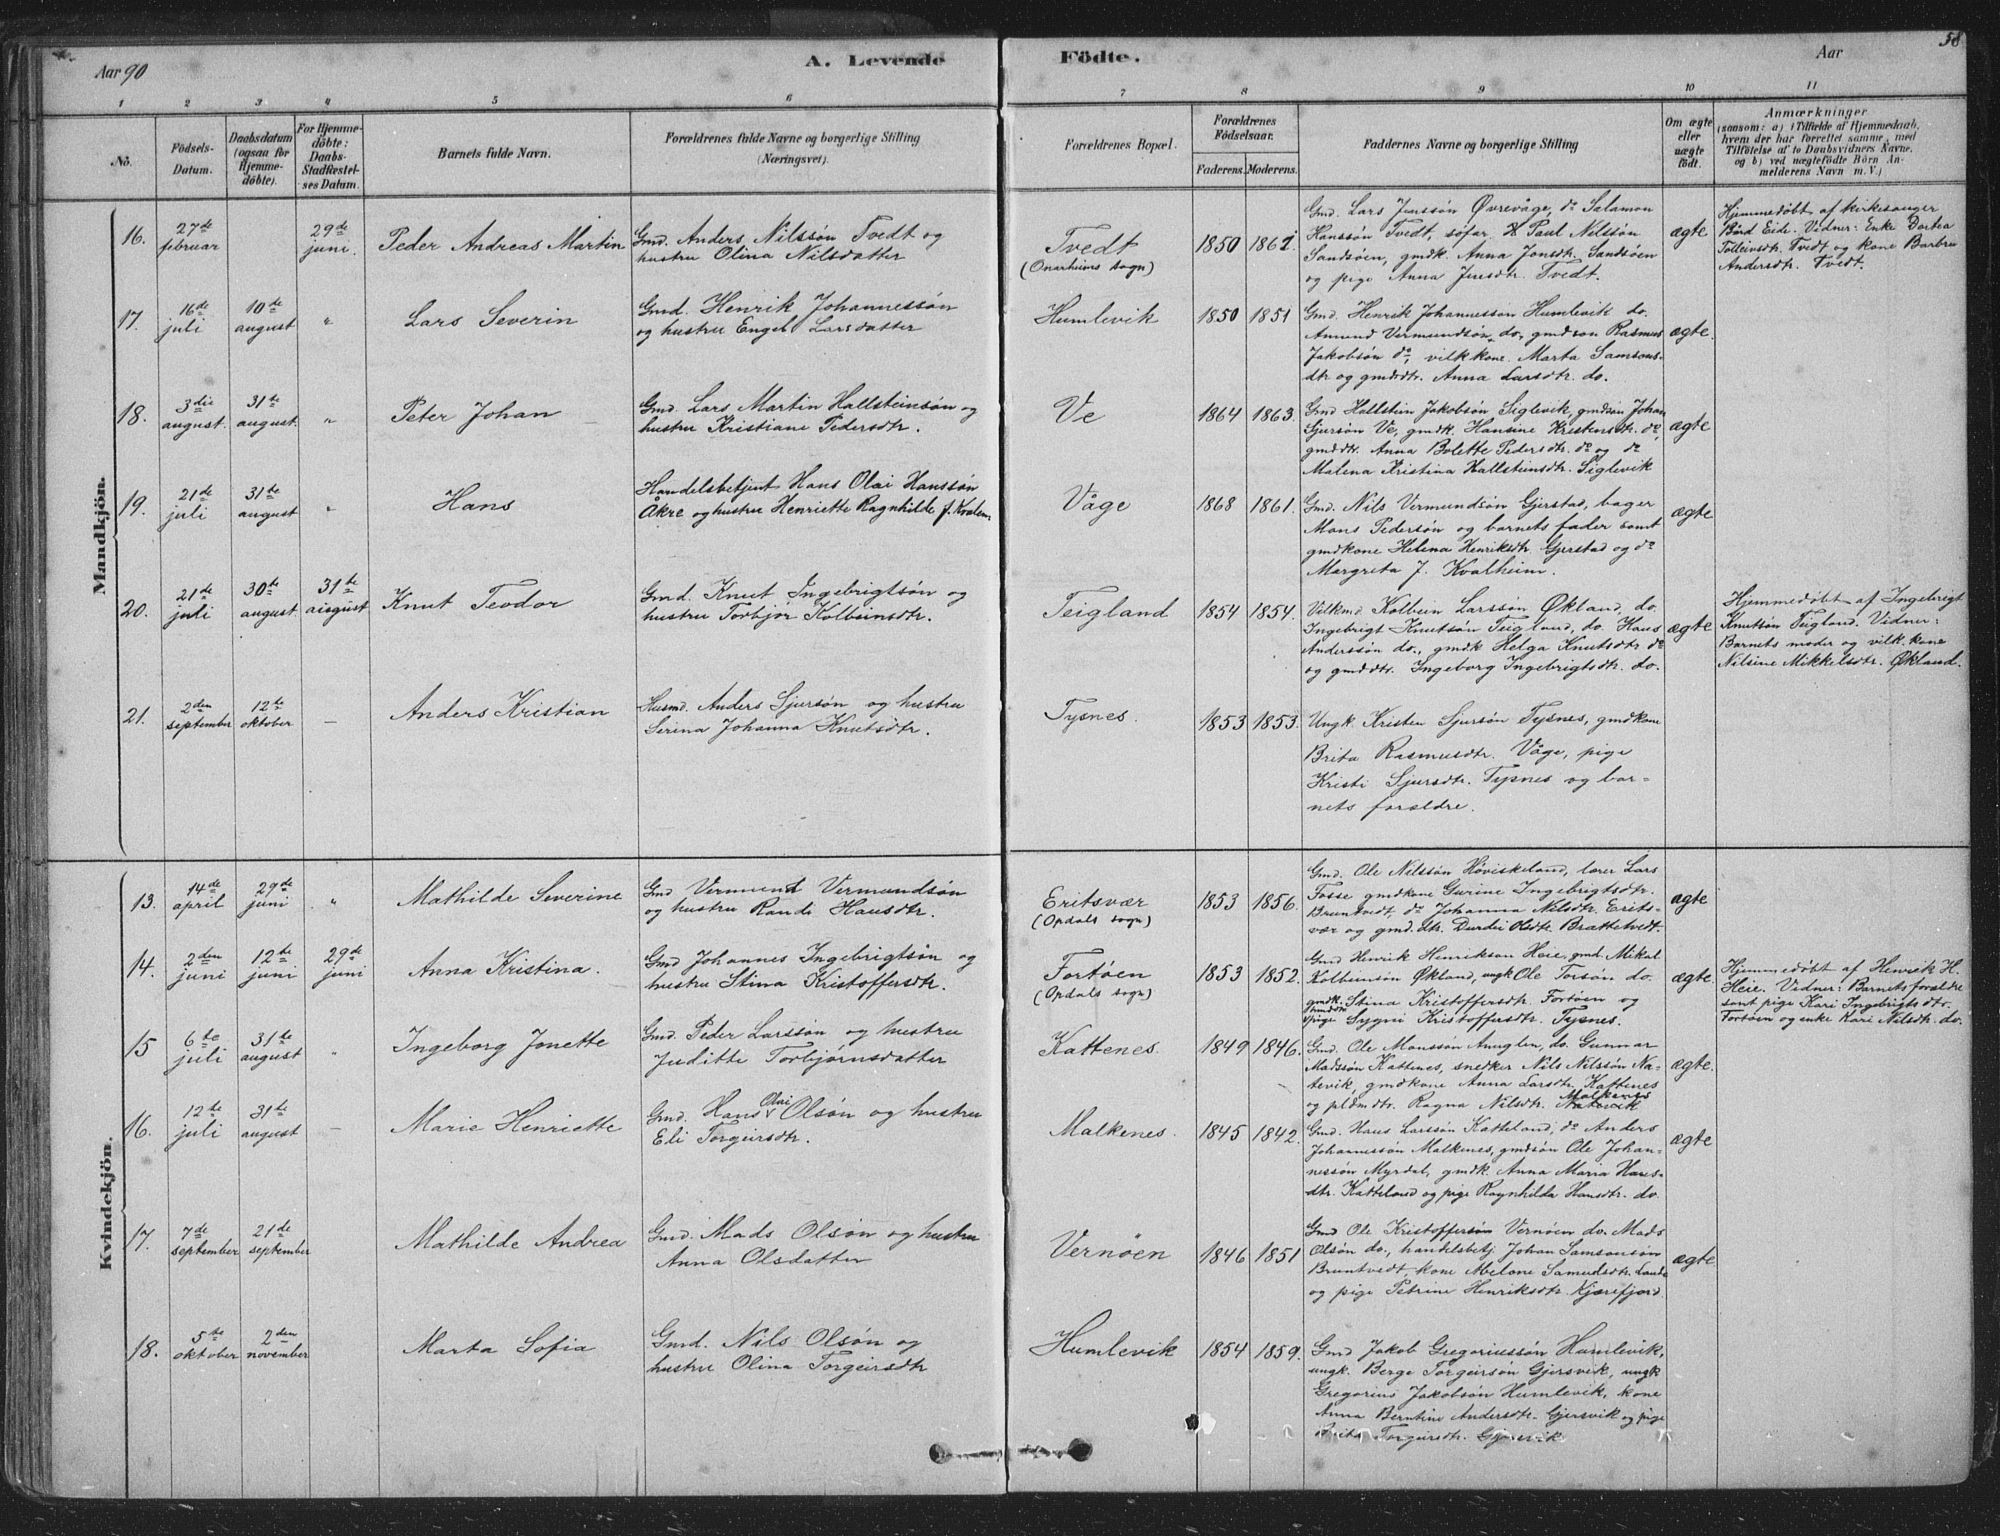 Aar 90
A. Levende
Födte.
Aar
58
1
2
3
4
5
6
7
8
9
10
11
No.
Födsels-
Datum.
Daabsdatum
(ogsaa for
Hjemme-
döbte).
For Hjemme-
döbte:
Daabs-
Stadfæstel-
ses Datum.
Barnets fulde Navn.
Forældrenes fulde Navne og borgerlige Stilling
(Næringsvei).
Forældrenes Bopæl.
Forældrenes
Födselsaar.
Faderens.
Moderens.
Faddernes Navne og borgerlige Stilling
Om ægte
eller
uægte
født.
Anmærkninger
(saasom: a) i Tilfælde af Hjemmedaab,
hvem der har forrettet samme, med
Tilföielse af to Daabsvidners Navne,
og b) ved uægtefödte Börn An-
melderens Navn m. V.)
Mandkjön.
16.
27de
februar
29de
juni
Peder Andreas Martin
Gmd. Anders Nilssøn Tvedt og
hustru Olina Nilsdatter
Tvedt
(Onarheims sogn)
1850
1862
Gmd. Lars Jenssøn Øvrevåge, do Salamon
Hanssøn Tvedt, søfar. H Paul Nilssøn
Sandsøen, gmdk. Anna Jonsdtr. Sandsøen
og pige Anna Jensdtr. Tvedt.
ægte
Hjemmedøbt af kirkesanger
Bård Eide. Vidner: Enke Dortea
Tolleivsdtr. Tvedt og kone Barbru
Andersdtr. Tvedt.
17.
16de
juli
10de
august
"
Lars Severin
Gmd. Henrik Johannessøn
og hustru Engel Larsdatter
Humlevik
1850
1851
Gmd. Henrik Johannessøn Humlevik do.
Amund Vermundsøn do, gmdsøn Rasmus
Jakobsøn do, vilkkone Marta Samsons-
dtr og gmdrdtr. Anna Larsdtr. do.
ægte.
18.
3die
august.
31te
august.
"
Peter Johan
Gmd. Lars Martin Hallsteinsøn og
hustru Kristiane Pedersdtr.
Ve
1864
1863.
Gmd Hallstein Jakobsøn Siglevik, gmdsøn Johan
Sjursøn Ve, gmdk. Hansine Kristensdtr. do,
gmddtr. Anna Bolette Pedersdtr. do og do
Malena Kristina Hallsteinsdtr. Siglevik
ægte
19.
21de
juli
31te
august
"
Hans
Handelsbetjent Hans Olai Hanssøn
Åkre og hustru Henriette Ragnhilde f. Kvalem
Våge
1868
1861.
Gmd. Nils Vermundsøn Gjerstad, bager
Mons Pedersøn og barnets fader samt
gmdkone Helena Henriksdtr. Gjerstad og do
Margreta J. Kvalheim.
ægte
20.
21de
juli
30te
august
31te
august
Knut Teodor
Gmd. Knut Ingebrigtsøn og
hustru Torbjør Kolbeinsdtr.
Teigland
1854
1854.
Vilkmd Kolbein Larssøn Økland, do.
Ingebrigt Knutsøn Teigland, do. Hans
Anderssøn do., gmdk Helga Knutsdtr do
og gmddtr. Ingeborg Ingebrigtsdtr. do.
ægte
Hjemmedøbt af Ingebrigt
Knutsøn Teigland. Vidner:
Barnets moder og vilk.kone
Nilsine Mikkelsdtr. Økland.
21.
2den
september
12te
oktober
–
Anders Kristian
Husmd. Anders Sjursøn og hustru
Serina Johanna Knutsdtr.
Tysnes.
1853
1853.
Ungk. Kristen Sjursøn Tysnes, gmdkone
Brita Rasmusdtr. Våge, pige
Kristi Sjursdtr. Tysnes og bar-
nets forældre.
Kvindekjön.
13.
14de
april
29de
juni
"
Mathilde Severine
Gmd Vermund Vermundsøn
og hustru Randi Hansdtr.
Eritsvær
(Opdals sogn)
1853
1856.
Gmd. Ole Nilssøn Høviskeland, lærer Lars
Fosse gmdkone Gurine Ingebrigtsdtr.
Bruntvedt do Johanna Nilsdtr. Erits-
vær og gmd.dtr. Durdei Olsdtr Brattetvedt.
ægte
14.
2den
juni
12te
juni
29de
juni
Anna Kristina.
Gmd Johannes Ingebrigtsøn og
hustru Stina Kristoffersdtr.
Fortøen
(Opdals sogn)
1853
1852.
Gmd Henrik Henrikson Heie, gmd Mikal
Kolbeinsøn Økland, ungk Ole Torsøn do.
gmdk. Stina Kristoffersdtr. Fortøen og
pige Sygni Kristoffersdtr. Tysnes.
ægte.
Hjemmedøbt af Henrik H.
Heie. Vidner: Barnets forældre
samt pige Kari Ingebrigtsdtr.
Fortøen og enke Kari Nilsdtr. do.
15
6te
juli
31te
august
"
Ingeborg Jonette
Gmd. Peder Larssøn og hustru
Juditte Torbjørnsdatter
Kattenes.
1849
1846.
Gmd. Ole Monssøn Anuglen, do. Gunnar
Madssøn Kattenes, snedker Nils Nilssøn Na-
tevik, gmdkone Anna Larsdtr. Kattenes
og pldmdtr. Ragna Nilsdtr. Natevik
Malkenes
ægte.
16.
12te
juli
31te
august
–
Marie Henriette
Gmd. Hans Olai Olsøn og hustru
Eli Torgeirsdtr.
Malkenes.
1845
1842.
Gmd. Hans Larssøn Katteland, do Anders
Johannessøn Malkenes, gmdsøn Ole Johan-
nessøn Myrdal, gmdk. Anna Maria Hans-
dtr. Katteland og pige Ragnhilda Hansdtr. do.
ægte
17.
7de
september
21de
september
Mathilde Andrea
Gmd. Mads Olsøn og hustru
Anna Olsdatter
Vernøen
1846
1851
Gmd Ole Kristoffersøn Vernøen do. Mads
Olsøn do., handelsbetj. Johan Samsonsøn
Bruntvedt, kone Melone Samuelsdtr. Lande
og pige Petrine Henriksdtr. Kjærefjord.
ægte
18.
5te
oktober
2den
november
Marta Sofia
Gmd. Nils Olsøn og
hustru Olina Torgeirsdtr
Humlevik
1854
1859.
Gmd Jakob Gregoriussøn Humlevik,
ungk. Berge Torgeirsøn Gjersvik, ungk
Gregorius Jakobsøn Humlevik, kone
Anna Berntine Andersdtr. Gjersvik og pige
Brita Torgeirsdtr. Gjersvik